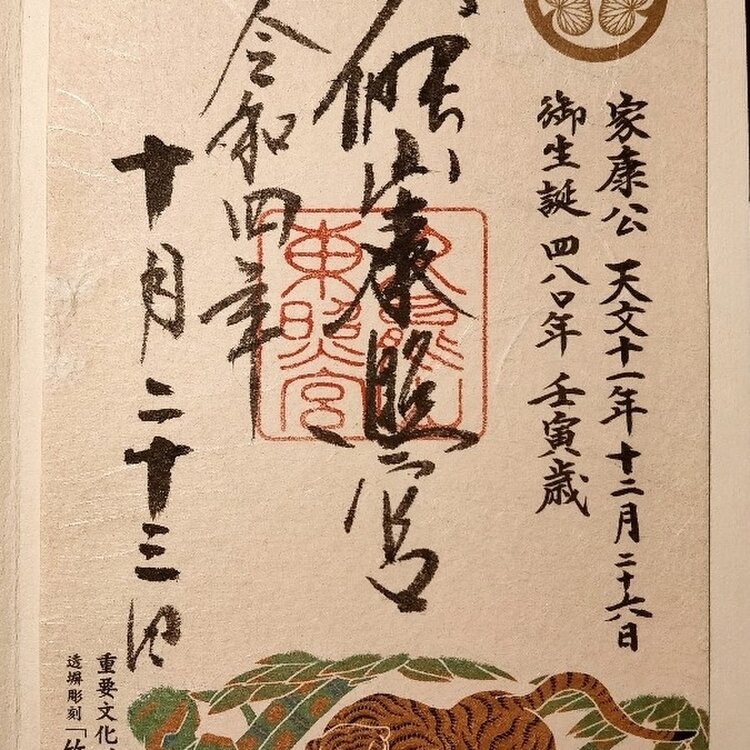 家康公 天文十一年十二月二十六日
御生誕 四八〇年 壬寅歳
能山東照宮
久能山
東照宮
令和四年
十月二十三日
重要文化
透塀彫刻「竹